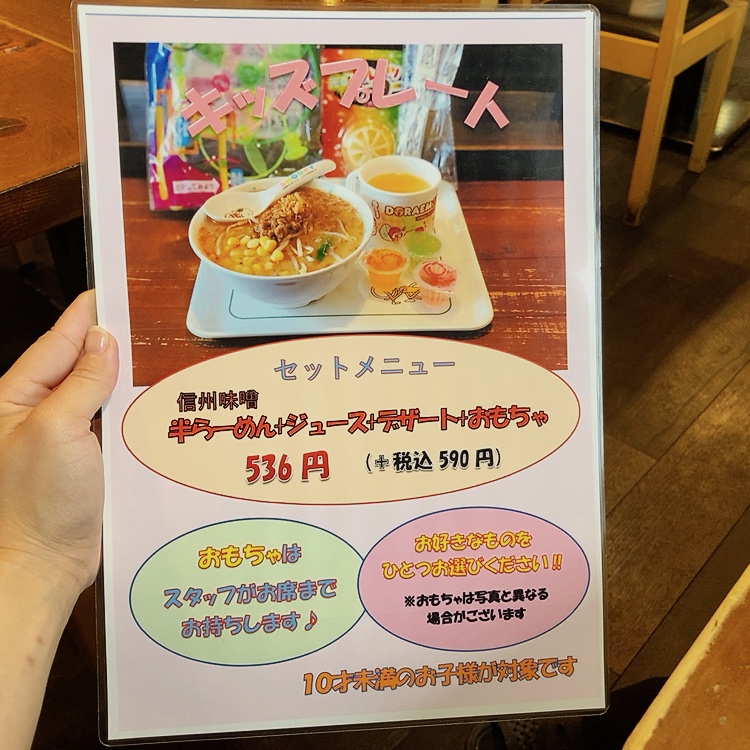 キッズプレート
DORAEM
セットメニュー
信州味噌
半らーめん+ジュース+デザート+おもちゃ
536円 (+税込590円)
おもちゃは
スタッフがお席まで
お持ちします♪
お好きなものを
ひとつお選びください!!
※おもちゃは写真と異なる
場合がございます
10才未満のお子様が対象です